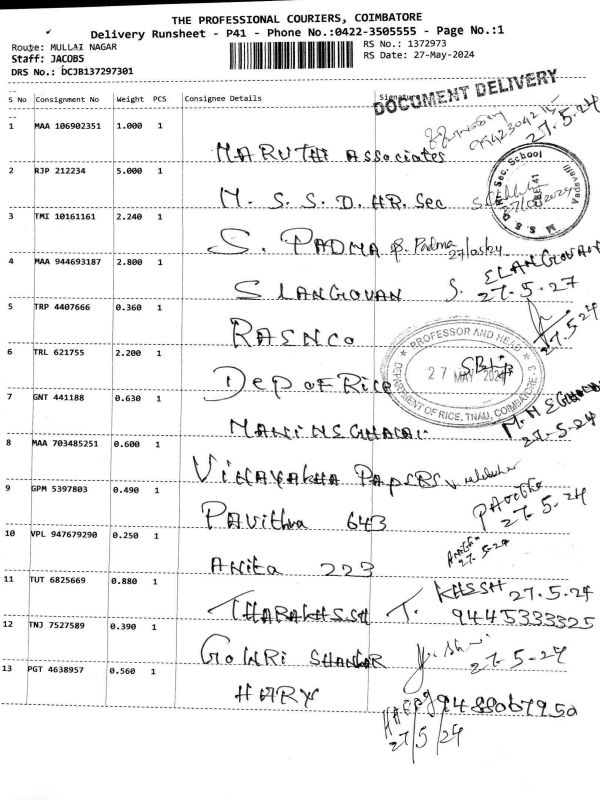 THE PROFESSIONAL COURIERS, COIMBATORE
Delivery Runsheet - P41 - Phone No.:0422-3505555 - Page No.:1
Route: MULLAI NAGAR
RS No.: 1372973
Staff: JACOBS
RS Date: 27-May-2024
DRS No.: DCJB137297301
S No Consignment No Weight PCS Consignee Details Signature
DOCUMENT DELIVERY
1 MAA 106902351 1.000 1
27.5.24
MARUTHI Associates
2 RJP 212234 5.000 1
M. S. S. D. HR. Sec
M. S. S. D. Hr. Sec. School
CBE-41
Vadavalli
3 TMI 10161161 2.240 1
S. PADMA S. Padma 27/05/24
4 MAA 944693187 2.800 1
S LANGOVAN S. ELANGOVAN
27.5.27
5 TRP 4407666 0.360 1
RASNCO
27.5.24
6 TRL 621755 2.200 1
Dep of Rice
PROFESSOR AND HEAD
27 MAY 2024
DEPARTMENT OF RICE, TNAU, COIMBATORE - 3
7 GNT 441188 0.630 1
27-5-24
8 MAA 703485251 0.600 1
VINAYAKHA PAPERS
9 GPM 5397803 0.490 1
Pavithra 643
Pavithra
27.5.24
10 VPL 947679290 0.250 1
Anita 223
Anitha
27.5.24
11 TUT 6825669 0.880 1
THARAKHSSH T. KHSSH 27.5.24
9445333325
12 TNJ 7527589 0.390 1
GOWRI SHANKAR
27-5-24
13 PGT 4638957 0.560 1
HARY
9488067950
27/5/24